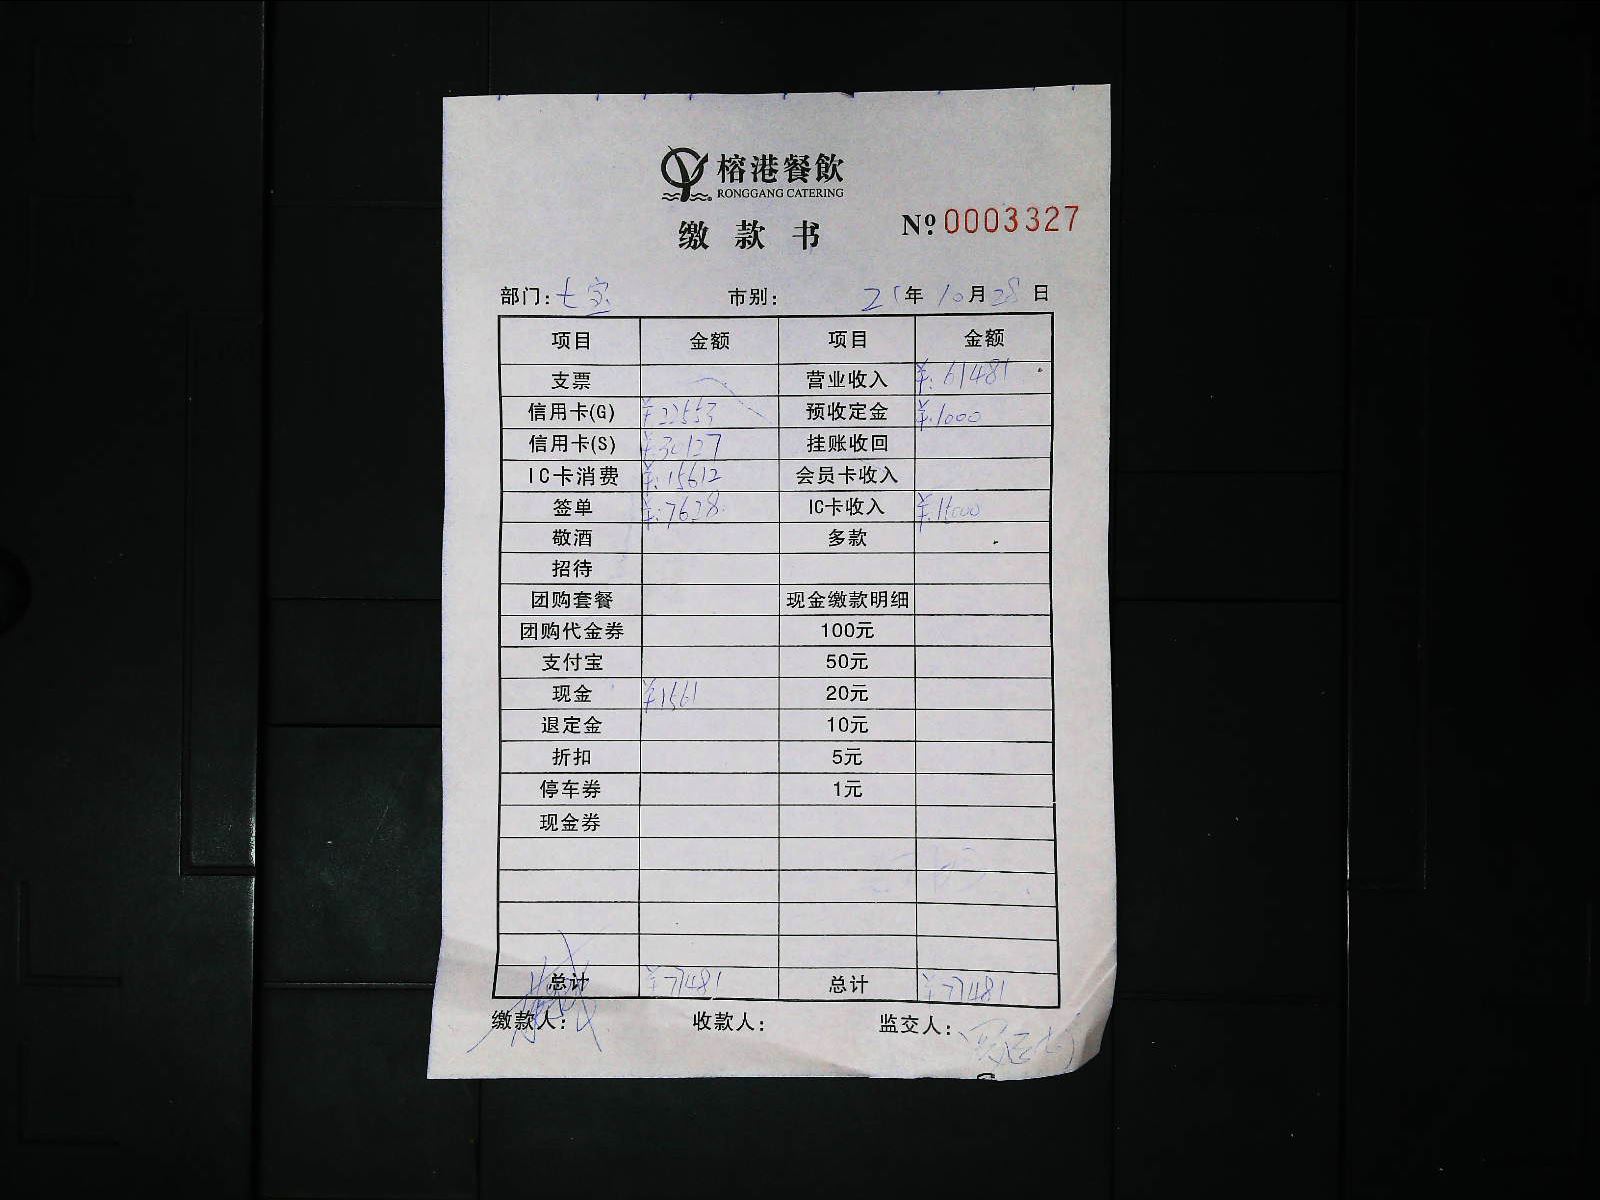 榕港餐飲
RONGGANG CATERING
缴款书
Nº 0003327
部门: 七宝 市别: 21年10月28日
项目 金额 项目 金额
支票 营业收入 ¥:61481
信用卡(G) ¥22553 预收定金 ¥:1000
信用卡(S) ¥30127 挂账收回
IC卡消费 ¥:15612 会员卡收入
签单 ¥:7628 IC卡收入 ¥:15000
敬酒 多款
招待
团购套餐 现金缴款明细
团购代金券 100元
支付宝 50元
现金 ¥1561 20元
退定金 10元
折扣 5元
停车券 1元
现金券
总计 ¥77481 总计 ¥77481
缴款人: 收款人: 监交人: